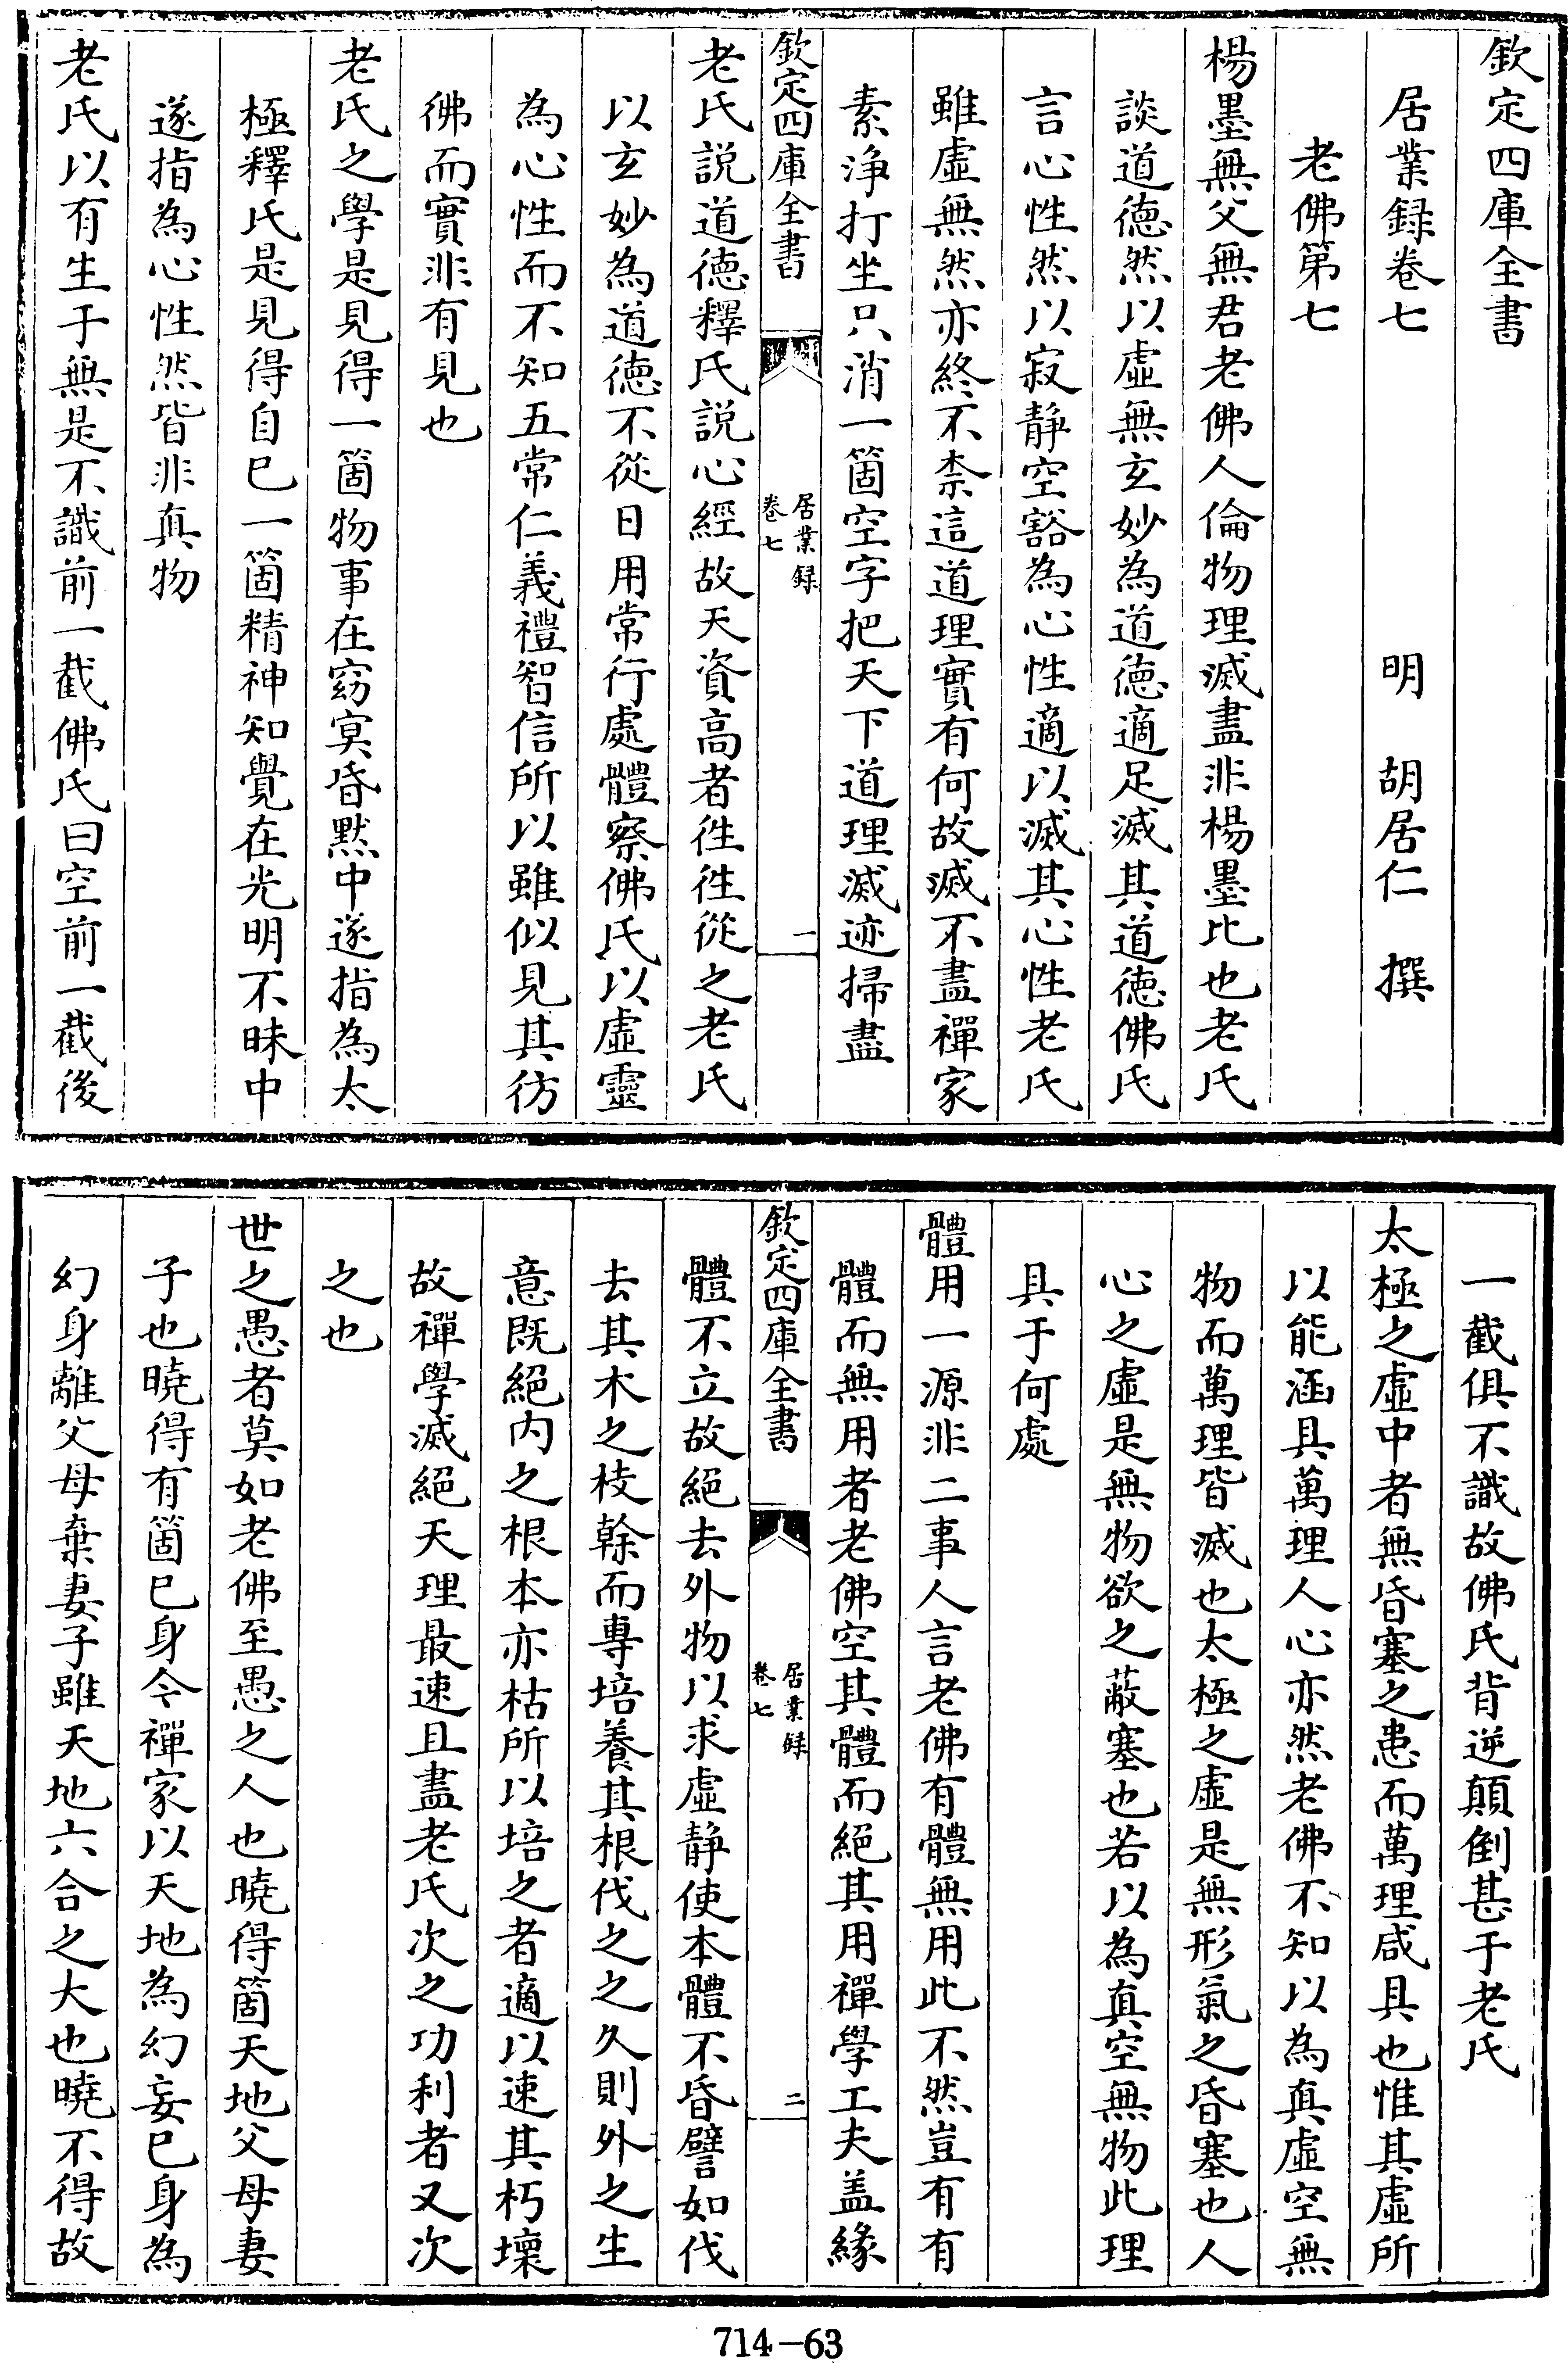 欽定四庫全書
居業録卷七
明 胡居仁 撰
老佛第七
楊墨無父無君老佛人倫物理滅盡非楊墨比也老氏
談道德然以虛無玄妙為道德適足滅其道德佛氏
言心性然以寂静空豁為心性適以滅其心性老氏
雖虛無然亦終不柰這道理實有何故滅不盡禪家
素浄打坐只消一箇空字把天下道理滅迹掃盡
欽定四庫全書
居業録
卷七
一
老氏説道德釋氏説心經故天資高者徃徃從之老氏
以玄妙為道德不從日用常行處體察佛氏以虛靈
為心性而不知五常仁義禮智信所以雖似見其彷
彿而實非有見也
老氏之學是見得一箇物事在窈冥昏黙中遂指為太
極釋氏是見得自巳一箇精神知覺在光明不昧中
遂指為心性然皆非真物
老氏以有生于無是不識前一截佛氏曰空前一截後
一截俱不識故佛氏背逆顛倒甚于老氏
太極之虛中者無昏塞之患而萬理咸具也惟其虛所
以能涵具萬理人心亦然老佛不知以為真虛空無
物而萬理皆滅也太極之虛是無形氣之昏塞也人
心之虛是無物欲之蔽塞也若以為真空無物此理
具于何處
體用一源非二事人言老佛有體無用此不然豈有有
體而無用者老佛空其體而絕其用禪學工夫盖緣
欽定四庫全書
居業録
卷七
二
體不立故絕去外物以求虛静使本體不昏譬如伐
去其木之枝榦而專培養其根伐之之久則外之生
意既絕内之根本亦枯所以培之者適以速其朽壞
故禪學滅絕天理最速且盡老氏次之功利者又次
之也
世之愚者莫如老佛至愚之人也曉得箇天地父母妻
子也曉得有箇巳身今禪家以天地為幻妄巳身為
幻身離父母棄妻子雖天地六合之大也曉不得故
714-63